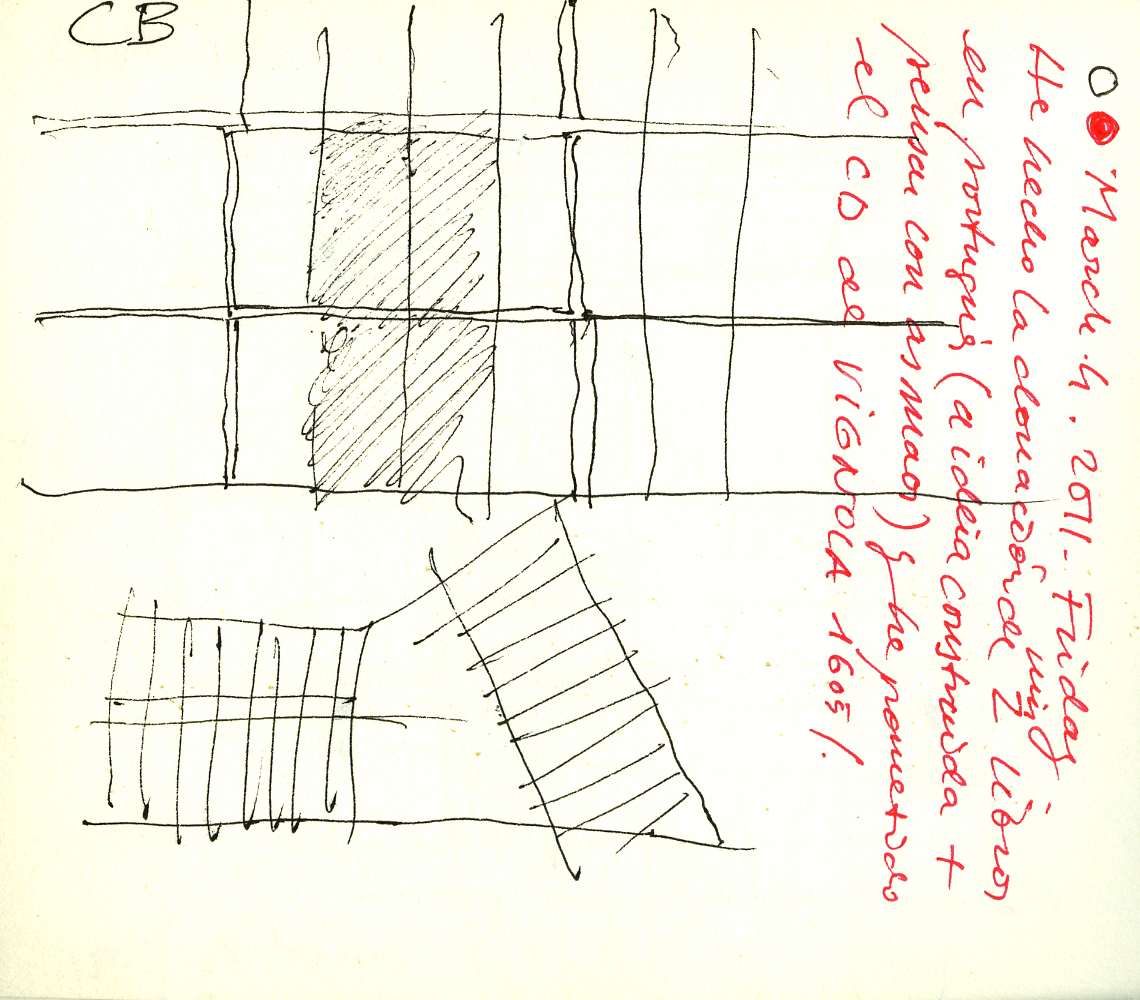 CB
March.4. 2011- Friday
He hecho la donación de 2 libros míos
en portugués (a idéia construida +
pensar con as maos) y he prometido
el CD de VIGNOLA 1605!.